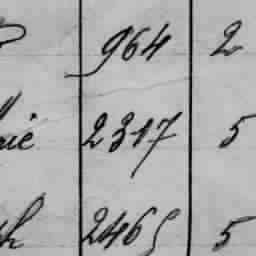 964 2
2317 5
2465 5